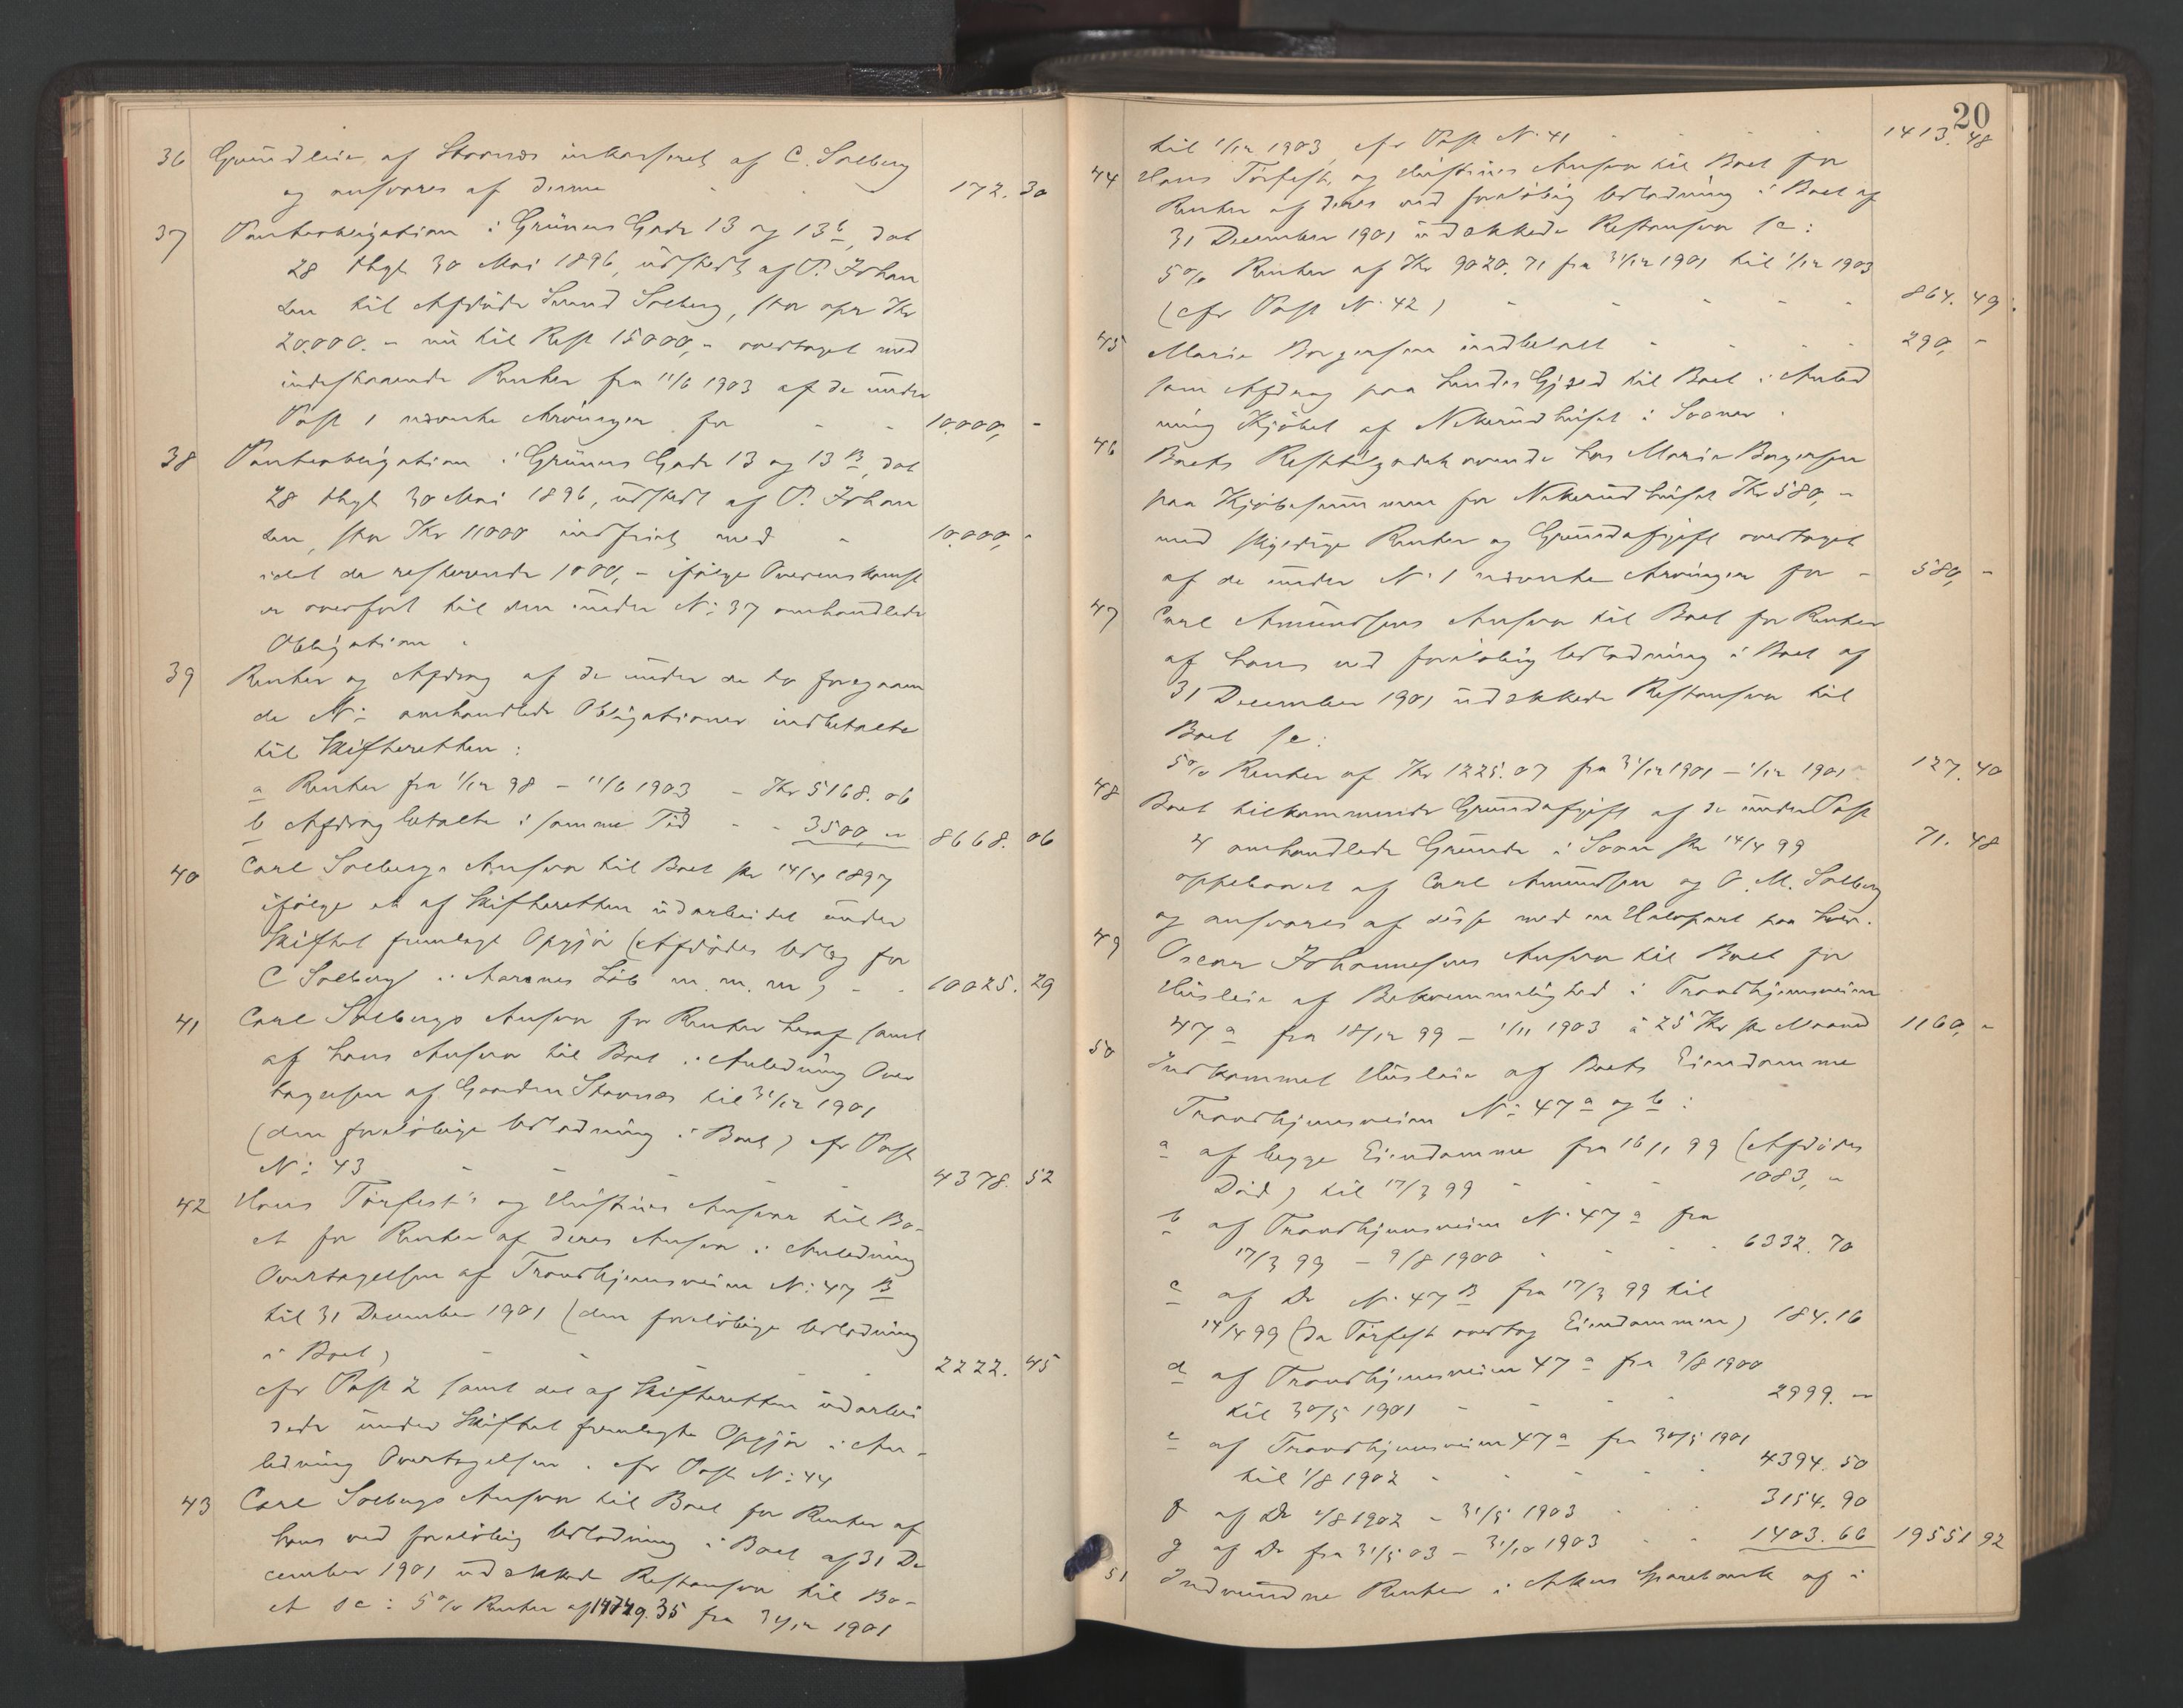 36 Grundleie af Stovnær inkasseret af C. Solberg
og ansvares af denne - - 172. 30
37 Panteobligation i Grüners Gade 13 og 13 b, dat
28 thgl. 30 Mai 1896, udstedt af P. Johan
sen til Afdøde Svend Solberg, stor opr Kr
20.000. - nu til Rest 15000,- overtaget med
indestaaende Renter fra 11/6 1903 af de under
Post 1 nævnte Arvinger for - - 10.000, -
38 Panteobligation i Grüners Gade 13 og 13 B, dat
28 thgl 30 Mai 1896, udstedt af P. Johan
sen, stor Kr 11000 indfriet med - 10.000, -
idet de resterende 1000,- ifølge Overenskomst
er overført til den under N: 37 omhandlede
Obligation.
39 Renter og Afdrag af de under de to foregaaen
de N: omhandlede Obligationer indbetalte
til Skifteretten:
a Renter fra 1/12 98 - 11/6 1903 - Kr 5168. 06
b Afdrag betalte i samme Tid - - 3500,- 8668. 06
40 Carl Solbergs Ansvar til Boet pr 14/4 1897
ifølge et af Skifteretten udarbeidet under
Skiftet fremlagt Opgjør (Afdødes Udlæg for
C Solberg i Aarenes Løb m. m. m) - - 10025. 29
41 Carl Solbergs Ansvar for Renter heraf samt
af hans Ansvar til Boet i Anledning Over
tagelsen af Gaarden Stovnær til 31/12 1901
(den foreløbige Udlodning i Boet) cfr Post
N: 43 - - - 4378. 52
42 Hans Torfest's og Hustrues Ansvar til Bo-
et for Renter af deres Ansvar i Anledning
Overtagelsen af Trondhjemsveien N: 47 B
til 31 December 1901 (den foreløbige Udlodning
i Boet) - - - 2222. 45
cfr Post 2 samt det af Skifteretten udarbei
dede under Skiftet fremlagte Opgjør i An-
ledning Overtagelsen. cfr Post N: 44
43 Carl Solbergs Ansvar til Boet for Renter af
hans ved foreløbig Udlodning i Boet af 31 De
cember 1901 udækkede Restansvar til Bo-
et sc: 5% Renter af 14749.35 fra 31/12 1901
20
til 1/12 1903, cfr Post N: 41 - - - 1413. 48
44 Hans Torfest, og Hustrues Ansvar til Boet for
Renter af deres ved foreløbig Udlodning i Boet af
31 December 1901 udækkede Restansvar sc:
5% Renter af Kr 9020. 71 fra 31/12 1901 til 1/12 1903
(cfr Post N: 42) - - - 864. 49
45 Marie Borgersen indbetalt - - - 290, -
som Afdrag paa hendes Gjæld til Boet i Anled
ning Kjøbet af Nekerudhuset i Sooner.
46 Boets Resttilgodehavende hos Marie Borgersen
paa Kjøbesummen for Nekerudhuset Kr 580,-
med skyldige Renter og Grundafgift overtaget
af de under N: 1 nævnte Arvinger for - 580, -
47 Carl Amundsens Ansvar til Boet for Renter
af hans ved foreløbig Udlodning i Boet af
31 December 1901 udækkede Restansvar til
Boet sc:
5% Renter af Kr 1225. 07 fra 31/12 1901 - 1/12 1901 127. 40
48 Boet tilkommende Grundafgift af de under Post
4 omhandlede Grunde i Soon pr 14/4 99 71. 48
oppebaaret af Carl Amundsen og O. M. Solberg
og ansvares af disse med en Halvpart paa hver.
49 Oscar Johannesens Ansvar til Boet for
Husleie af Bekvemmelighed i Trondhjemsveien
47 a fra 18/12 99 - 1/11 1903 à 25 Kr pr Maaned 1160, -
50 Indkommet Husleie af Boets Eiendomme
Trondhjemsveien N: 47 a og b:
a af begge Eiendomme fra 16/1 99 (Afdødes
Død) til 17/3 99 - - - 1083, -
b af Trondhjemsveien N: 47 a fra
17/3 99 - 9/8 1900 - - - 6332. 70
c af Do N: 47 B fra 17/3 99 til
14/4 99 (da Torfest overtog Eiendommen) 184. 16
d af Trondhjemsveien 47 a fra 9/8 1900
til 30/5 1901 - - - 2999. -
e af Trondhjemsveien 47 a fra 30/5 1901
til 1/8 1902 - - - 4394. 50
f af Do 1/8 1902 - 31/5 1903 - - 3154. 90
g af Do fra 31/5 03 - 31/10 1903 - - 1403. 66 19551 92
51 Indvundne Renter i Akers Sparebank af i